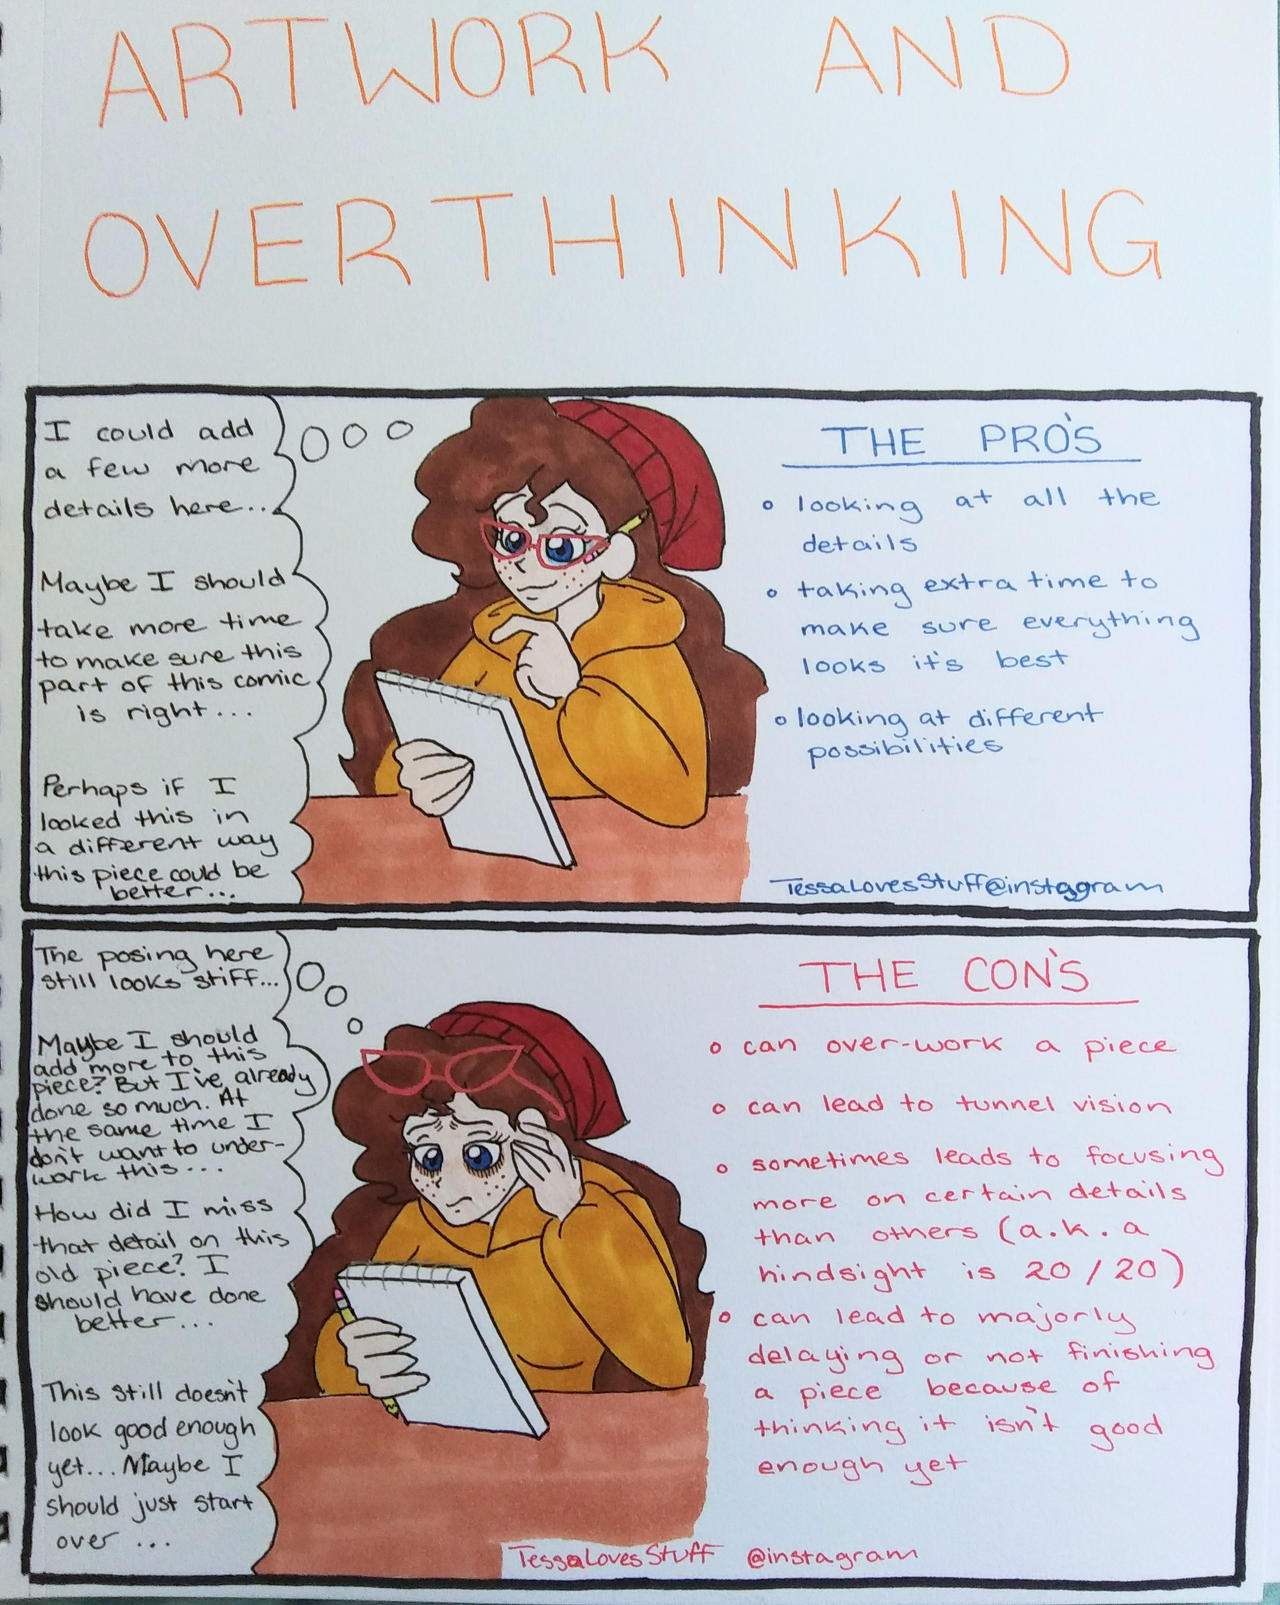 ARTWORK AND
OVERTHINKING
I could add
a few more
details here...
Maybe I should
take more time
to make sure this
part of this comic
is right...
Perhaps if I
looked this in
a different way
this piece could be
better...
THE PRO'S
• looking at all the
details
• taking extra time to
make sure everything
looks it's best
• looking at different
possibilities
TessaLovesStuff@instagram
The posing here
still looks stiff...
Maybe I should
add more to this
piece? But I've already
done so much. At
the same time I
don't want to under-
work this...
How did I miss
that detail on this
old piece? I
should have done
better...
This still doesn't
look good enough
yet... Maybe I
should just start
over ...
THE CON'S
• can over-work a piece
• can lead to tunnel vision
• sometimes leads to focusing
more on certain details
than others (a.k.a
hindsight is 20/20)
• can lead to majorly
delaying or not finishing
a piece because of
thinking it isn't good
enough yet
TessaLovesStuff @instagram